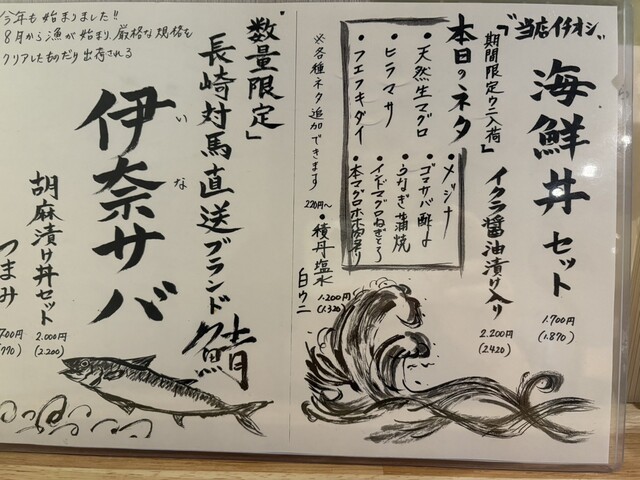 "当店イチオシ"
海鮮丼セット
1.700円
(1.870)
"期間限定ウニ入荷"
イクラ醤油漬け入り
2.200円
(2.420)
本日のネタ
・天然生マグロ
・ヒラマサ
・フエフキダイ
・メジナ
・ゴマサバ酢〆
・うなぎ蒲焼
・本マグロホホ肉炙り
※各種ネタ追加できます
220円〜
・積丹塩水
白ウニ
1.200円
(1.320)
"数量限定"
長崎対馬直送ブランド鯖
伊奈サバ
いな
胡麻漬け丼セット
2.000円
(2.200)
つまみ
700円
(770)
今年も始まりました!!
8月から漁が始まり、厳格な規格を
クリアしたものだけ出荷される